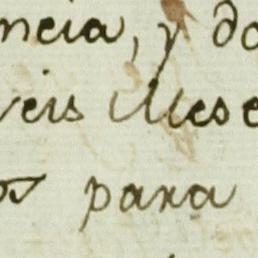 ncia, y do
seis Mese
os para